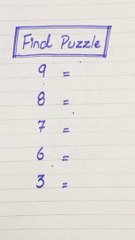 Find Puzzle
9 =
8 =
7 =
6 =
3 =